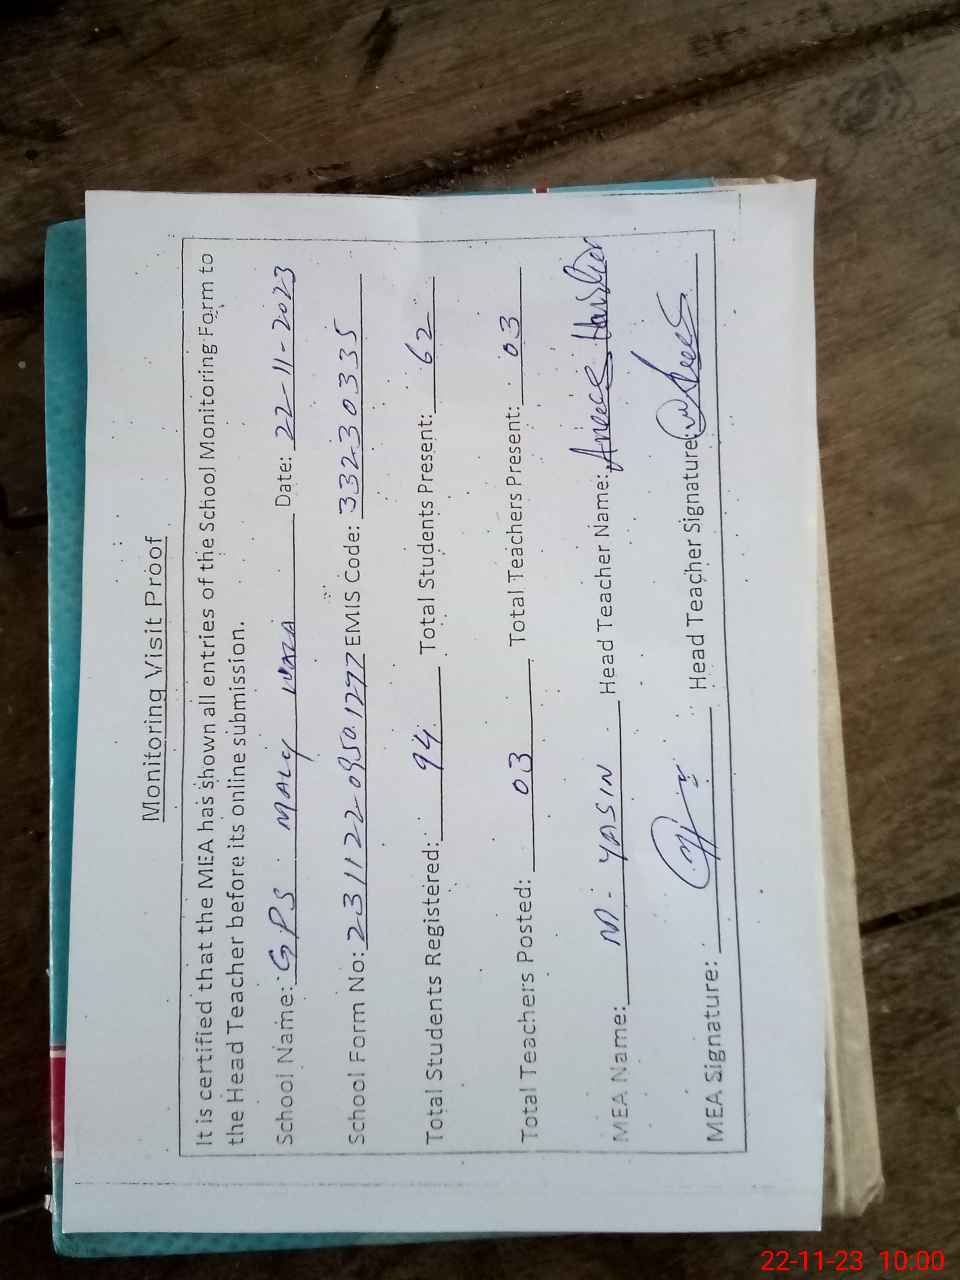 Monitoring Visit Proof
It is certified that the MEA has shown all entries of the School Monitoring Form to
the Head Teacher before its online submission.
School Name: GPS MALY WALA Date: 22-11-2023
School Form No: 231122 0950 1297 EMIS Code: 33230335
Total Students Registered: 94 Total Students Present: 62
Total Teachers Posted: 03 Total Teachers Present: 03
MEA Name: M. YASIN Head Teacher Name:
MEA Signature: Head Teacher Signature:
22-11-23 10:00